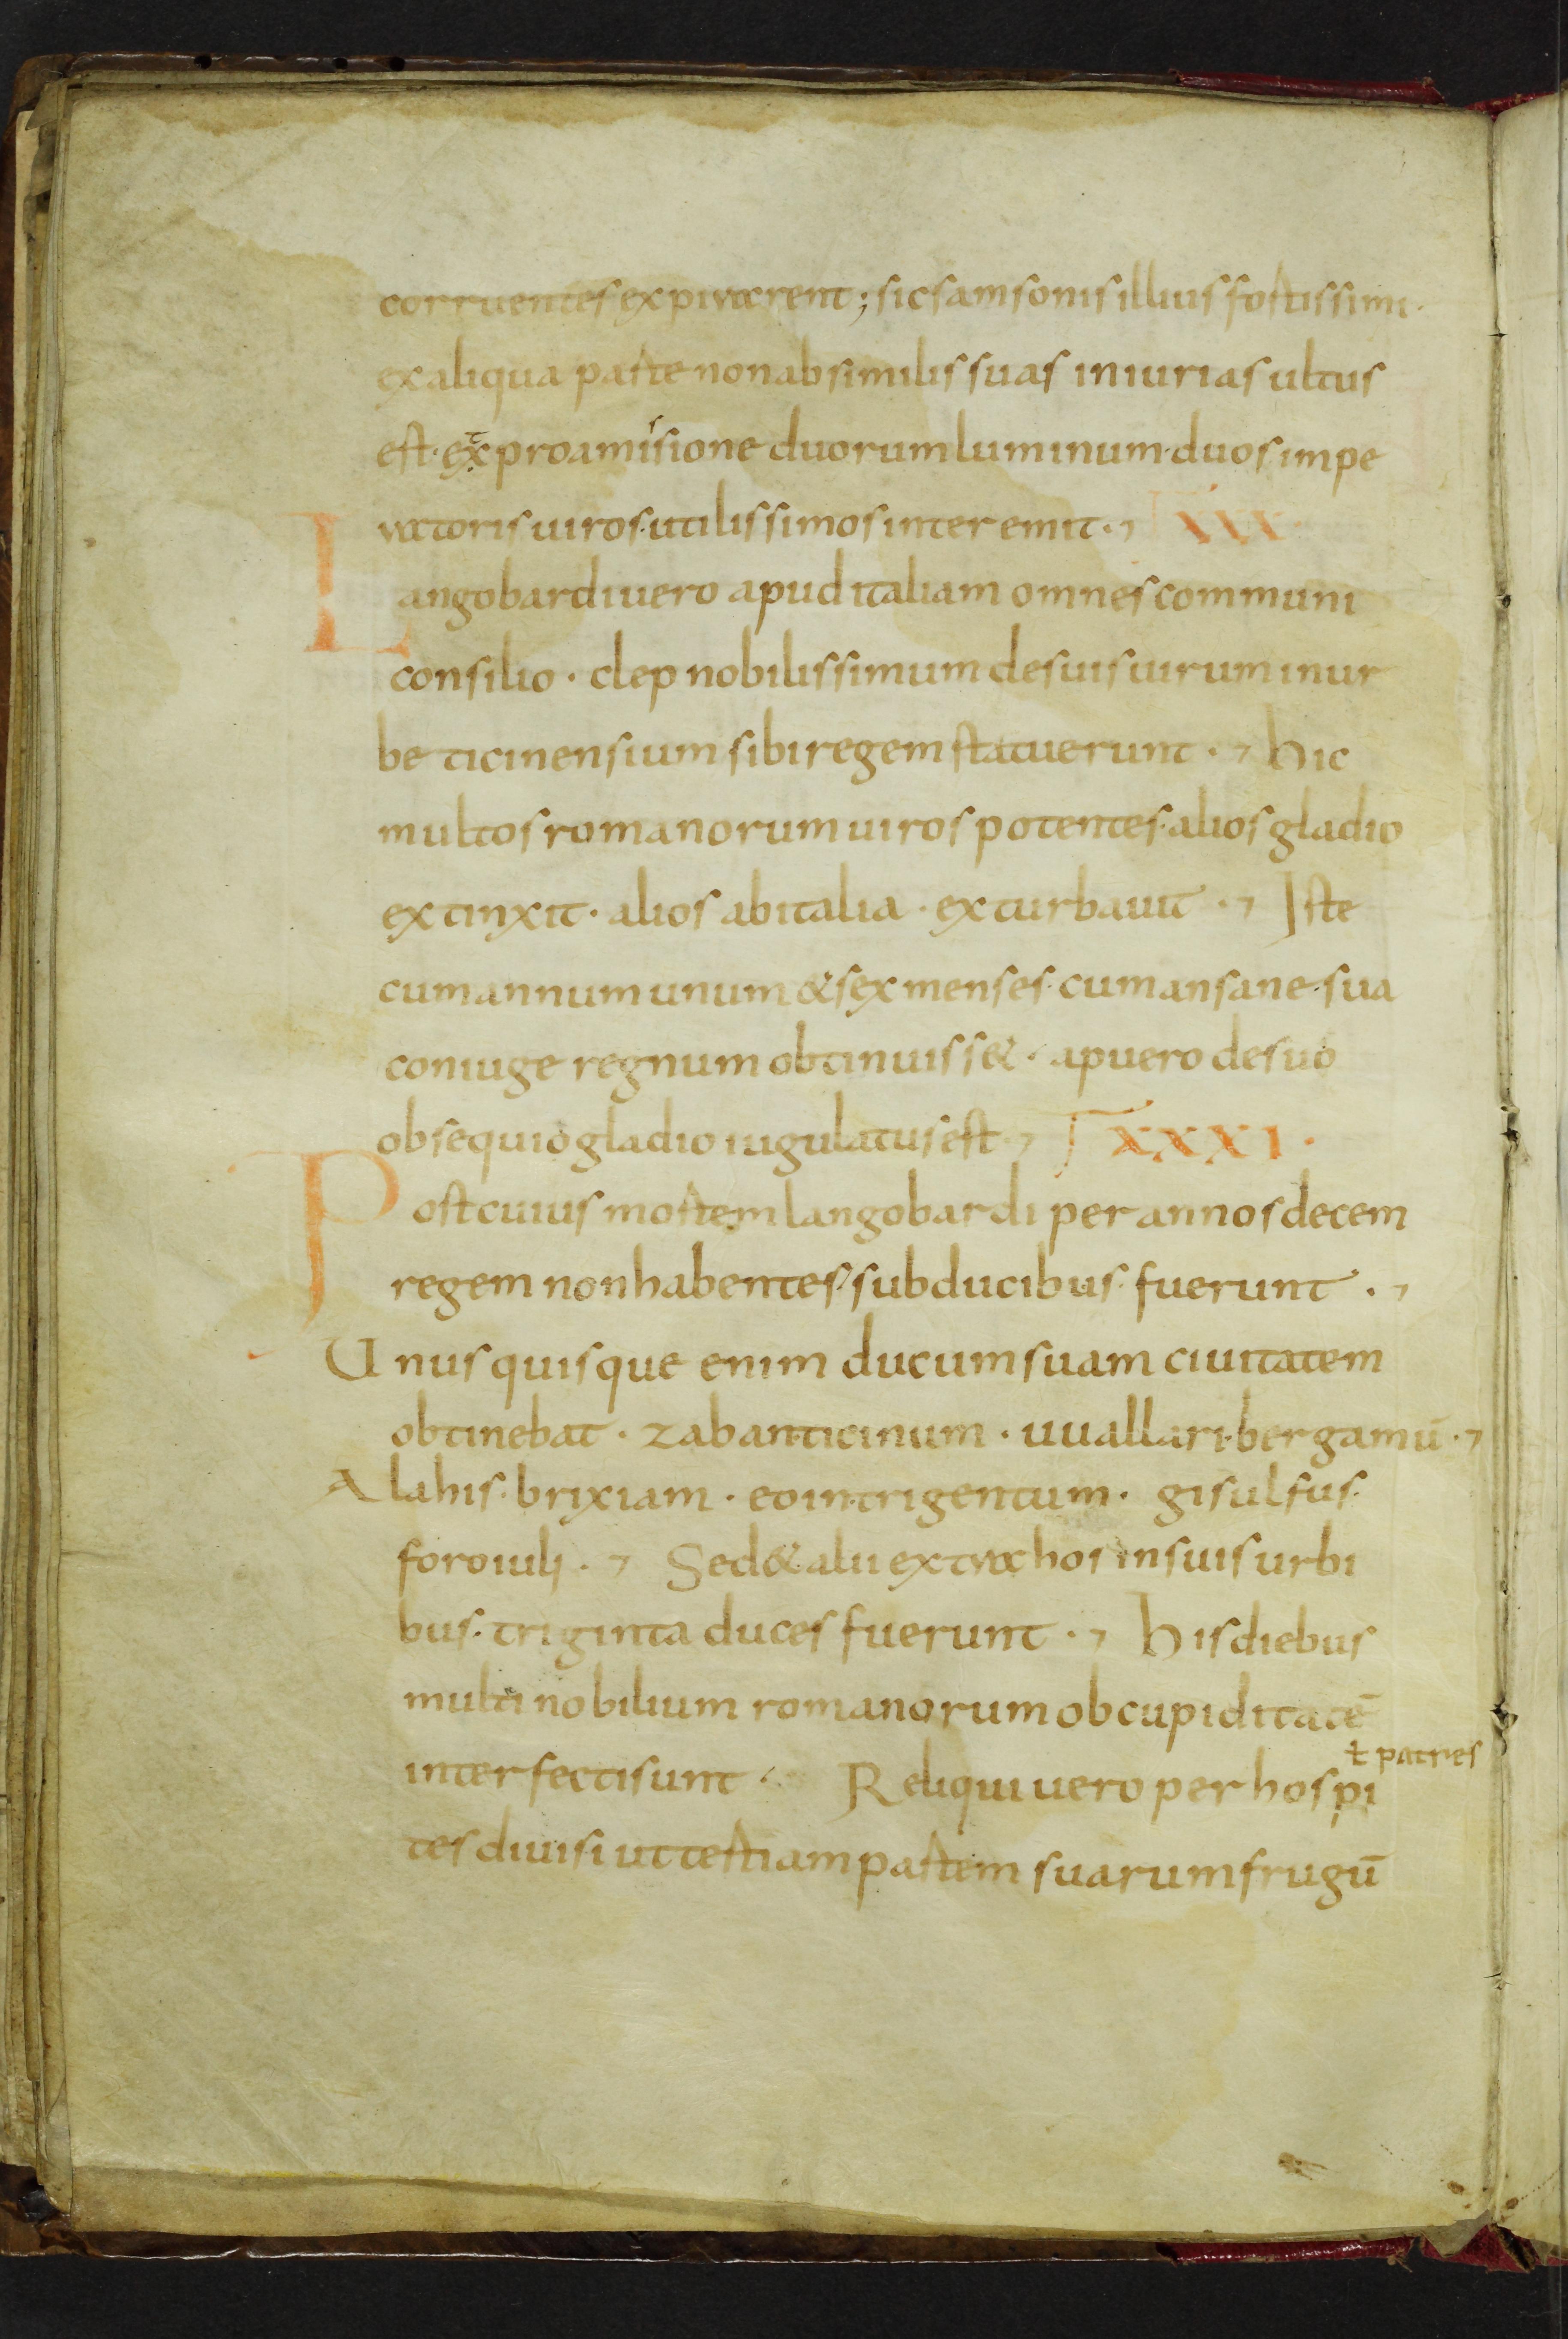 corruentes expirarent; sic samsonis illius fortissimi.
ex aliqua parte non absimilis suas iniurias ultus
est. ex̄ pro amisſione duorum luminum. duos impe
ratoris uiros. utilissimos interemit. XXX.
Langobardi uero apud italiam omnes communi
consilio. clep nobilissimum de suis uirum in ur
be ticinensium sibi regem statuerunt. Hic
multos romanorum uiros potentes. alios gladio
extinxit. alios ab italia. exturbauit. Iste
cum annum unum & sex menses. cum ansane. sua
coniuge regnum obtinuiss&. a puero de suo
obsequio gladio iugulatus est XXXI.
Post cuius mortem langobardi per annos decem
regem non habentes. sub ducibus. fuerunt.
Unusquisque enim ducum suam ciuitatem
obtinebat. zaban. ticinum. uuallari. bergamū.
Alahis. brixiam. eoin. trigentum. gisulfus.
foroiuli. Sed & alii extra hos in suis urbi
bus. triginta duces fuerunt. His diebus
multi nobilium romanorum ob cupiditatē
interfecti sunt. Reliqui uero per hospi
ł patres
tes diuisi ut tertiam partem suarum frugū